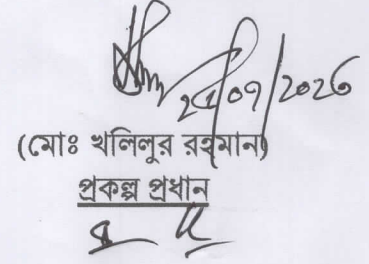 ২৫/০৭/২০২৬
(মোঃ খলিলুর রহমান)
প্রকল্প প্রধান